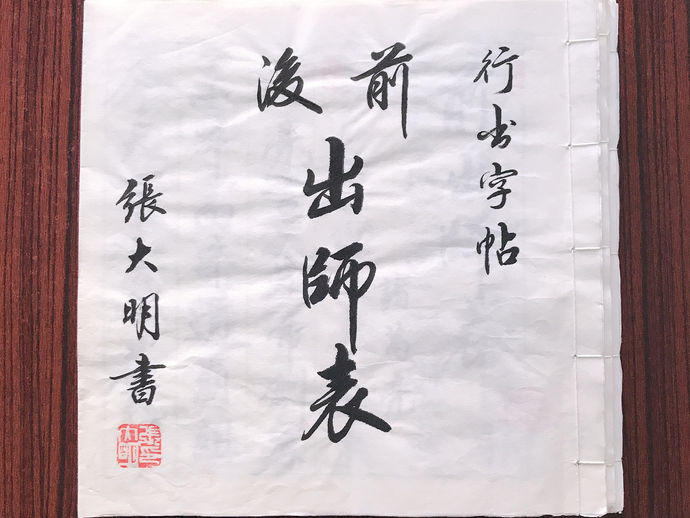 行书字帖
前後
出師表
張大明書